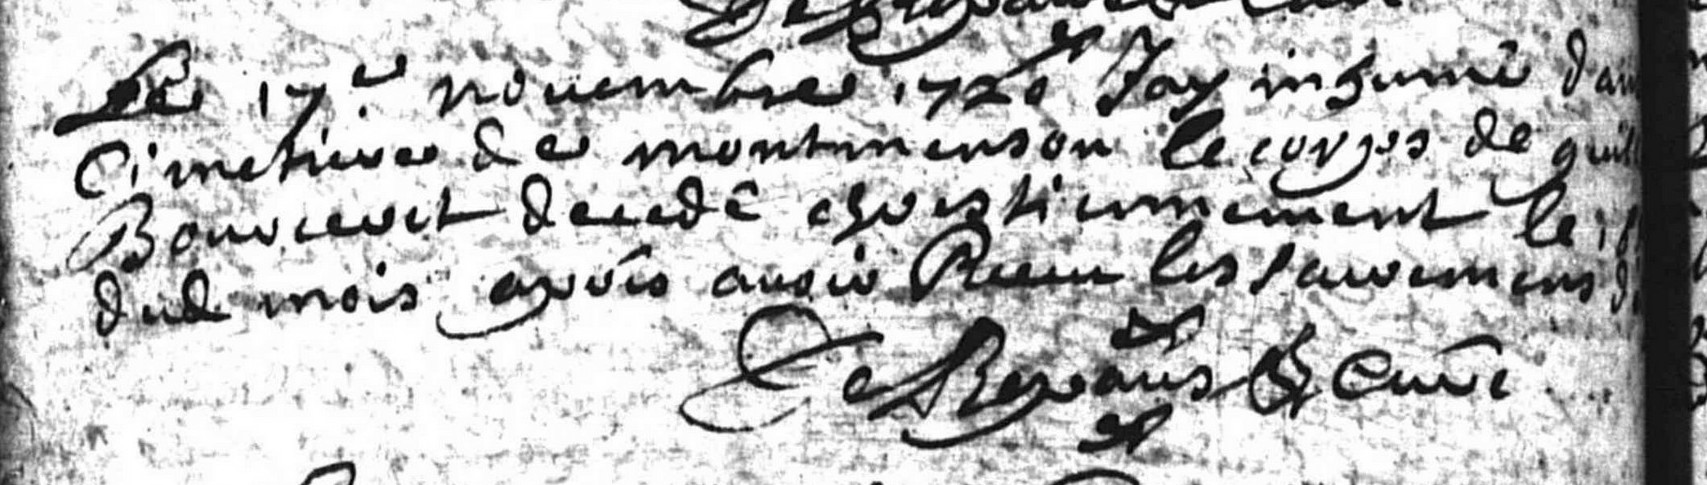 Le 17e novembre 1720 Jay inhumé dan
Cimetiere de montmenson le corps de guil
Bourceret decedé chrestiennement le 16
dud mois aprés avoir Receu les sacremens d
De Revaus Curé